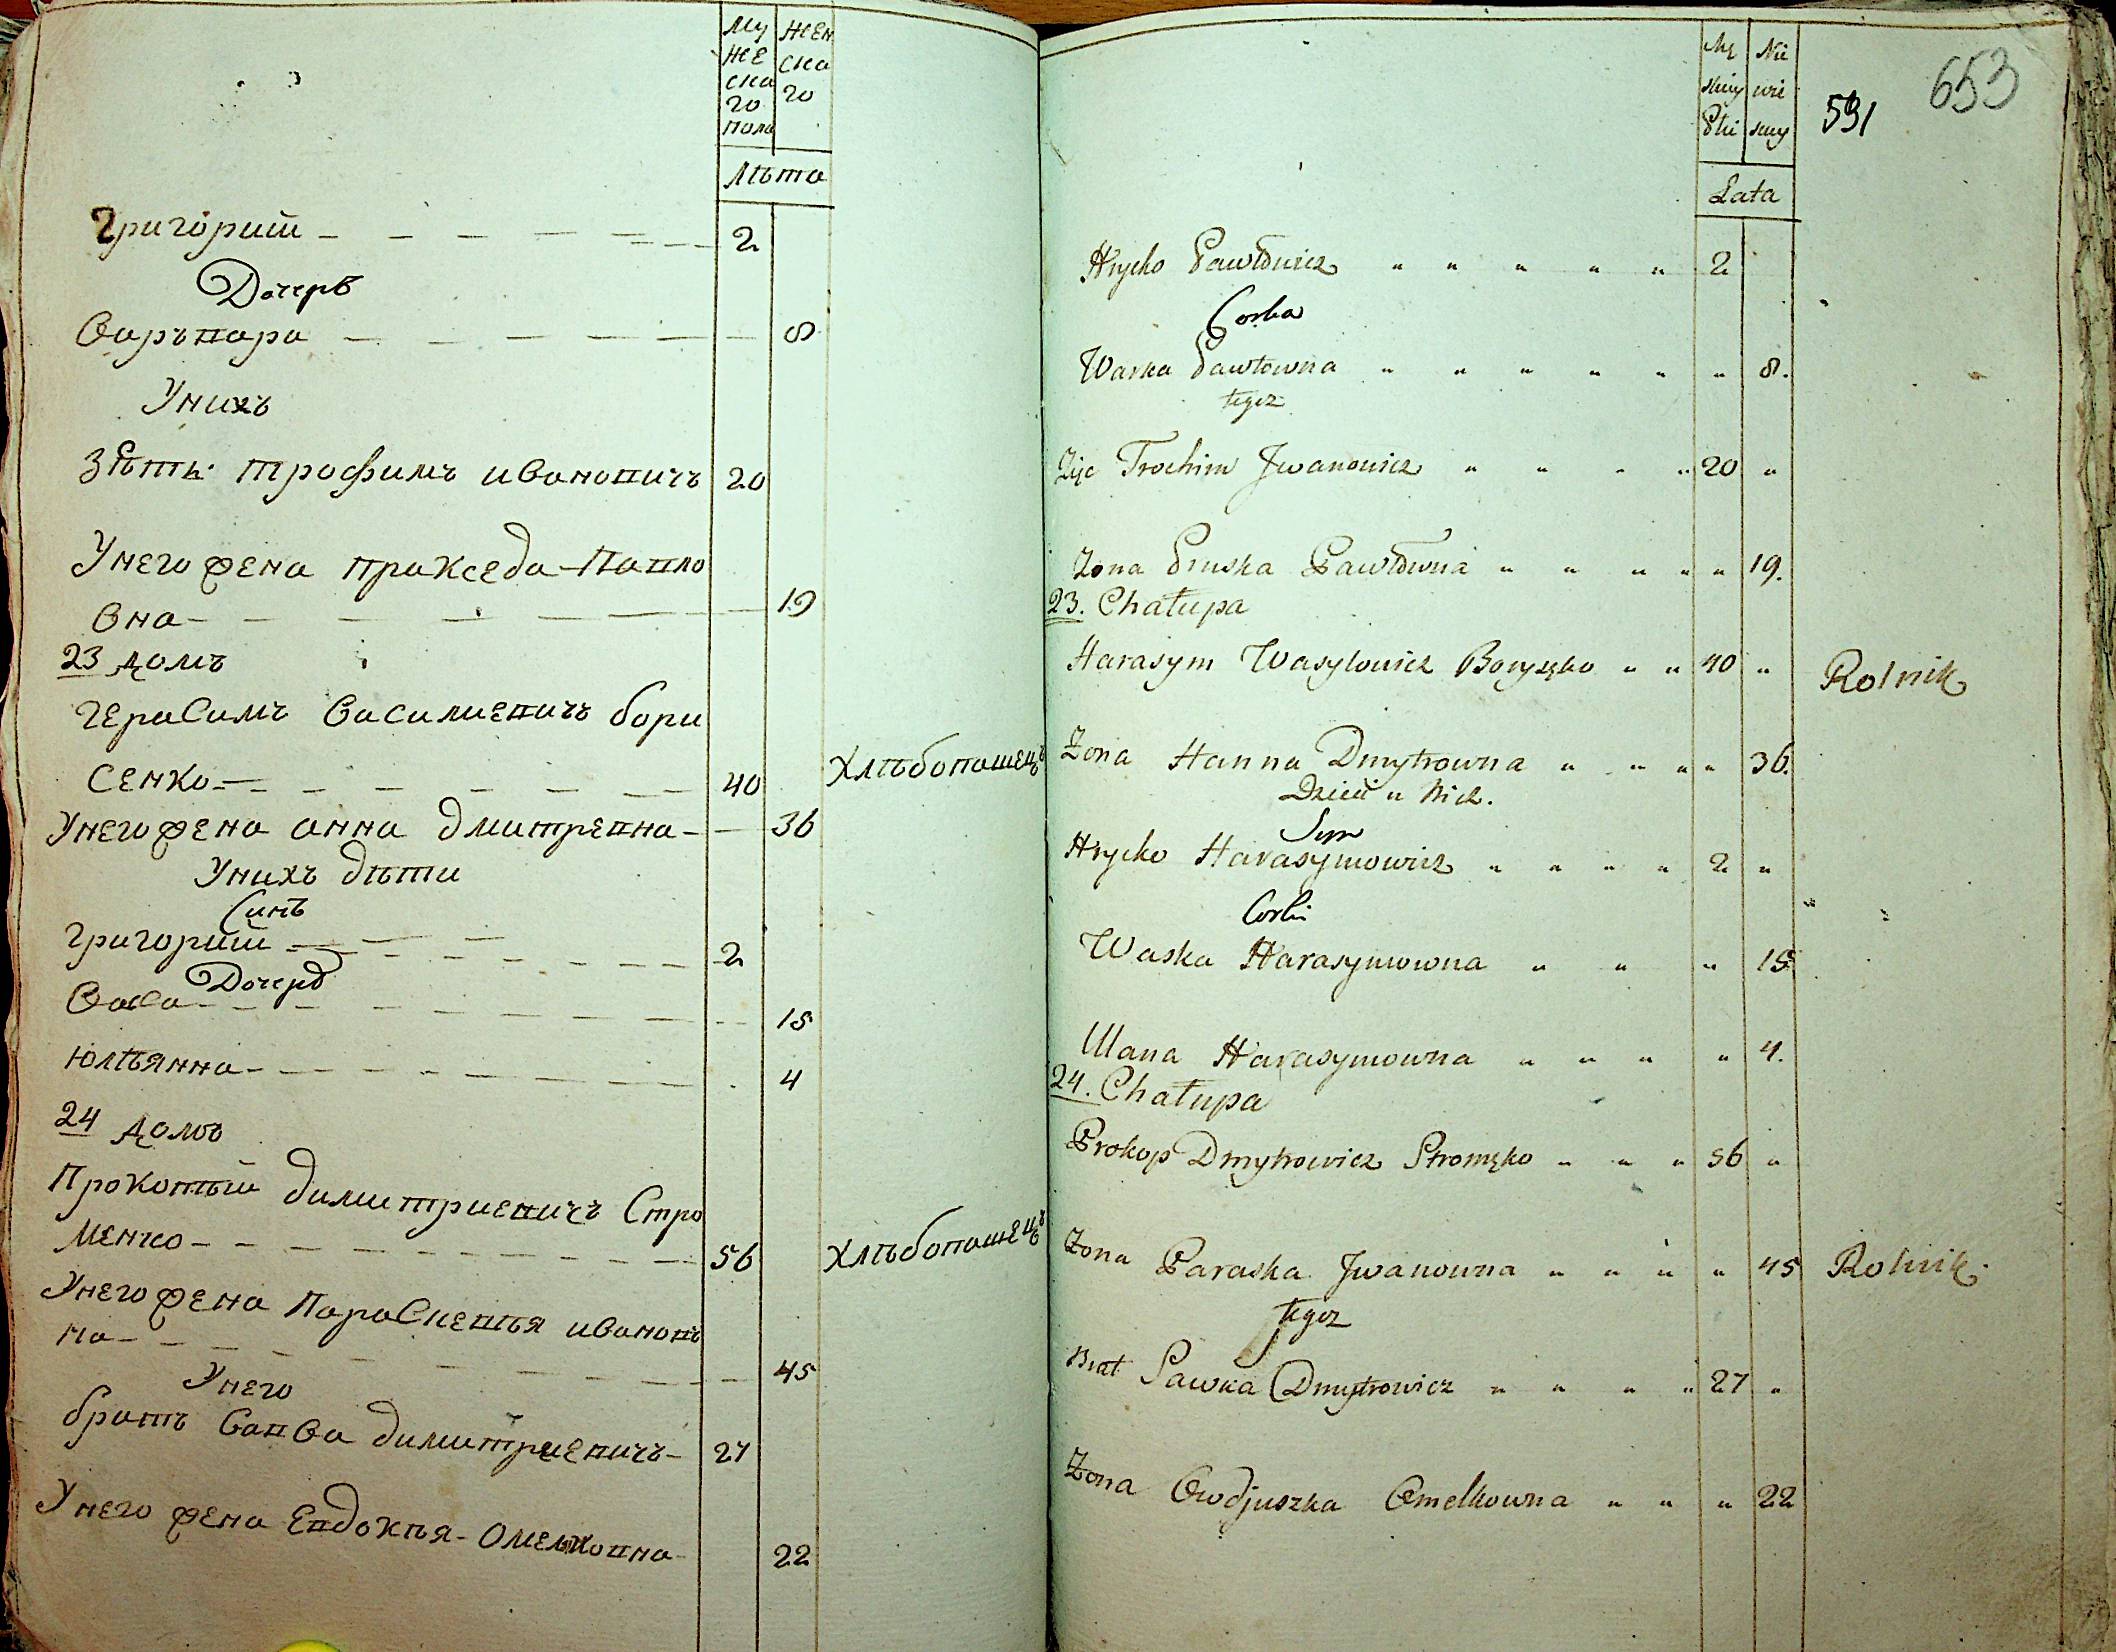 Му
же
ска
го
пола
Жен
ска
го
Лѣта
Григорий 2
Дочерь
Варъвара 8
У нихъ
Зѣть трофимъ ивановичъ 20
У него жена пракседа Павло
вна 19
23 домъ
герасимъ василиевичъ бори
сенко 40 Хлѣбопашецъ
У него жена анна дмитревна 36
У нихъ дѣти
Синъ
григорий 2
Дочерь
Васса 15
юлѣянна 4
24 домъ
Прокопый димитриевичъ Стро
менко 56 Хлѣбопашецъ
У него жена Параскевѣя ивановъ
на 45
У него
братъ Савва димитриевичъ 27
У него жена Евдокѣя Омелковна 22
Mę
skiey
Płci
Nie
wie
sciey
Lata
591
653
Hryćko Pawłowicz " " " " " 2
Corka
Warka Pawłowna " " " " " " 8.
tegoz
Zięć Trochim Jwanowicz " " " " 20 "
Zona Pruska Pawłowna " " " " " 19.
23. Chałupa
Harasym Wasylowicz Borysęko " " 40 " Rolnik
Zona Hanna Dmytrowna " " " " 36.
Dzieci u Nich.
Syn
Hryćko Harasymowicz " " " " 2 "
Corki
Waska Harasymowna " " " 15
Ulana Harasymowna " " " " 4.
24. Chałupa
Prokop Dmytrowicz Stromęko " " " 56 "
Zona Paraska Jwanowna " " " " 45 Rolnik.
tegoz
Brat Sawka Dmytrowicz " " " " 27 "
Zona Owdjuszka Omelkowna " " " 22